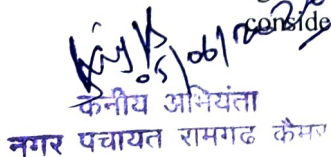 conside
05/06/2025
कनीय अभियंता
नगर पंचायत रामगढ कैमूर